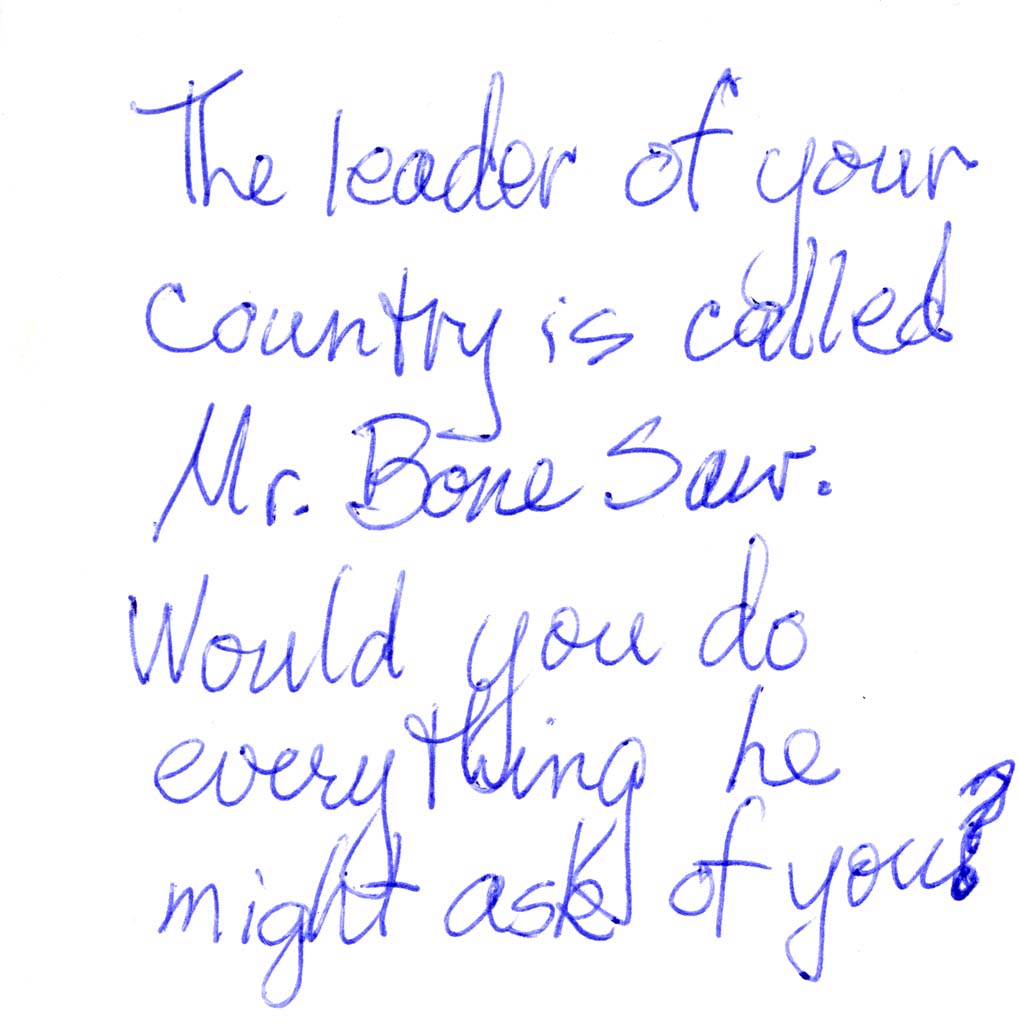 The leader of your
country is called
Mr. Bone Saw.
Would you do
everything he
might ask of you?